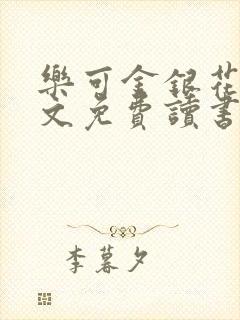 樂可金銀花
文免費讀書
李暮夕